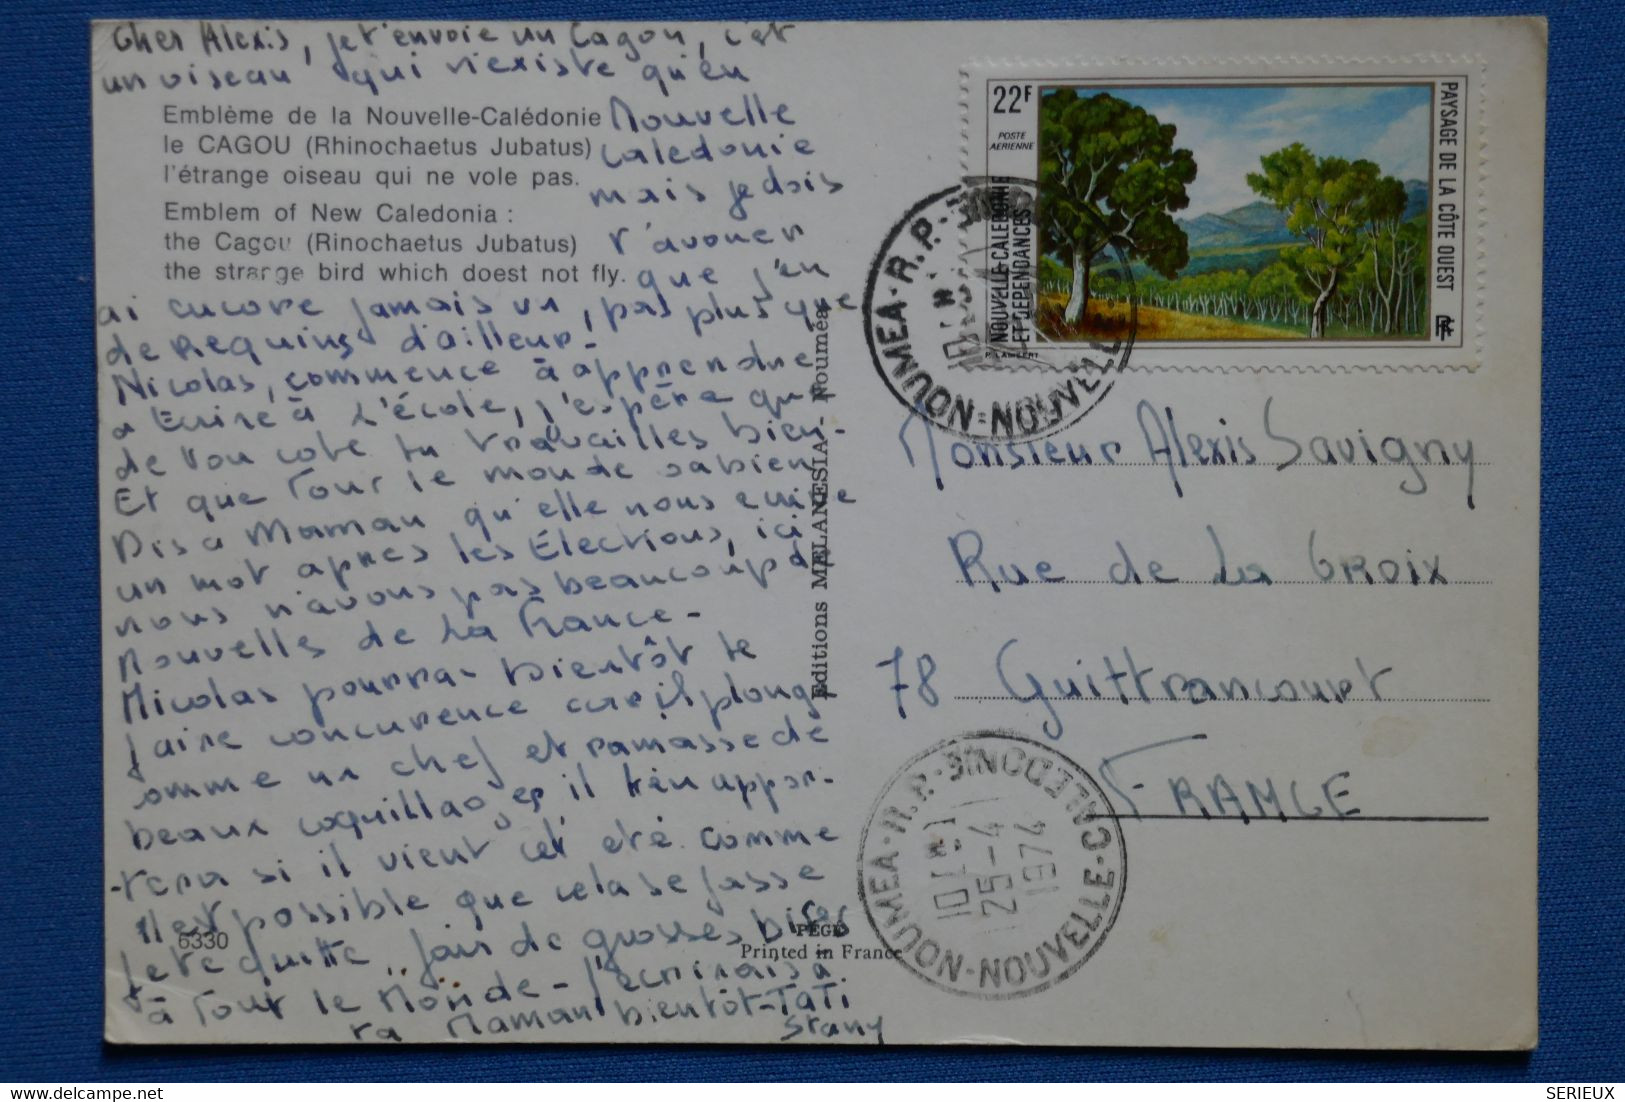 Cher Alexis, je t'envoie un Cagou, c'est
un oiseau qui n'existe qu'en
Nouvelle
Calédonie
mais je dois
t'avouer
que j'en
ai encore jamais vu, pas plus que
de requins d'ailleur-
Nicolas, commence à apprendre
a Ecrire à L'école, j'espère que
de ton coté tu travailles bien-
Et que Tout le monde va bien
Dis a Maman qu'elle nous écrive
un mot après les Élections, ici
nous n'avons pas beaucoup de
Nouvelles de La France-
Nicolas pourras bientôt te
faire concurence car il plonge
comme un chef et ramasse de
beaux coquillages il t'en appor-
-tera si il vient cet été comme
il est possible que cela se fasse
Je te quitte, fais de grosses bises
à Tout le Monde- J'écrirais à
ta Maman bientôt-TaTi
Stany
Emblème de la Nouvelle-Calédonie
le CAGOU (Rhinochaetus Jubatus)
l'étrange oiseau qui ne vole pas.
Emblem of New Caledonia :
the Cagou (Rinochaetus Jubatus)
the strange bird which doest not fly.
6330
PEGE
Printed in France
Editions MELANESIA - Nouméa
22F
POSTE
AERIENNE
NOUVELLE-CALEDONIE
ET DEPENDANCES
P. LAMBERT
PAYSAGE DE LA CÔTE OUEST
NOUMEA-R.P.
NOUVELLE
Monsieur Alexis Savigny
Rue de La Croix
78 Guittrancourt
FRANCE
NOUMEA-R.P.
NOUVELLE-CALEDONIE
25-4
1974
delcampe.net
SERIEUX